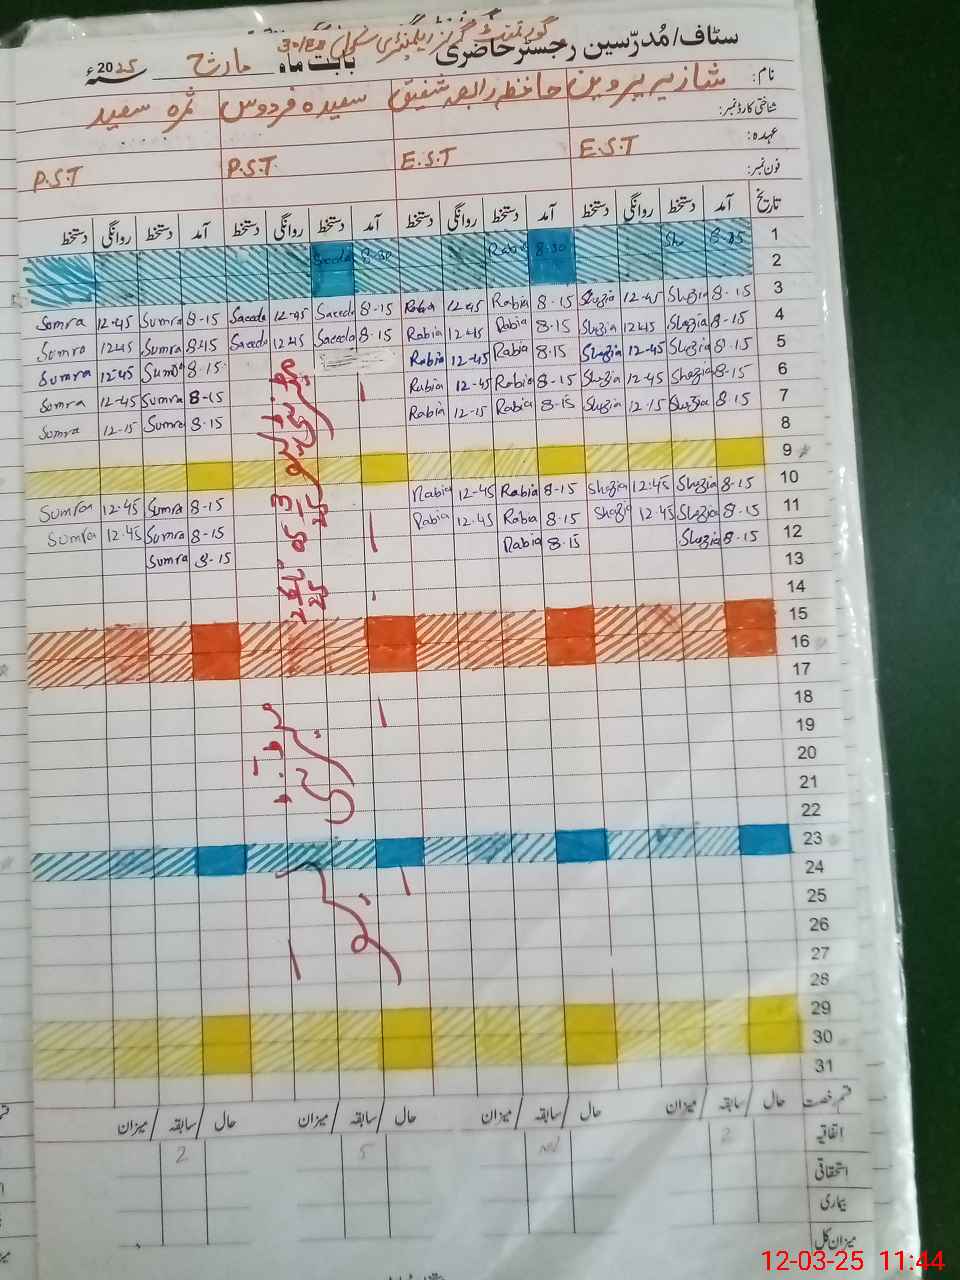 گورنمنٹ گرلز ایلمنٹری سکول 30/EB
سٹاف/مُدرّسین رجسٹر حاضری بابت ماہ مارچ سنہ 2025ء
نام: شازیہ پروین حافظہ رابعہ شفیق سعیدہ فردوس ثمرہ سعید
شناختی کارڈ نمبر:
عہدہ: E.S.T E.S.T P.S.T P.S.T
فون نمبر:
تاریخ آمد دستخط روانگی دستخط آمد دستخط روانگی دستخط آمد دستخط روانگی دستخط آمد دستخط روانگی دستخط
1 8-35 Sha 8-30 Rabia 8-30 Saeeda
2
3 8-15 Shazia 12-45 Shazia 8-15 Rabia 12-45 Rabia 8-15 Saeeda 12-45 Saeeda 8-15 Sumra 12-45 Somra
4 8-15 Shazia 12-45 Shazia 8-15 Rabia 12-45 Rabia 8-15 Saeeda 12-45 Saeeda 8-15 Sumra 12-45 Somra
5 8-15 Shazia 12-45 Shazia 8-15 Rabia 12-45 Rabia 8-15 Sumra 12-45 Sumra
6 8-15 Shazia 12-45 Shazia 8-15 Rabia 12-45 Rabia 8-15 Sumra 12-45 Somra
7 8-15 Shazia 12-15 Shazia 8-15 Rabia 12-15 Rabia 8-15 Sumra 12-15 Somra
8
9
10 8-15 Shazia 12-45 Shazia 8-15 Rabia 12-45 Rabia 8-15 Sumra 12-45 Sumra
11 8-15 Shazia 12-45 Shazia 8-15 Rabia 12-45 Rabia 8-15 Sumra 12-45 Sumra
12 8-15 Shazia 8-15 Rabia 8-15 Sumra
13
14
15
16
17
18
19
20
21
22
23
24
25
26
27
28
29
30
31
قسم رخصت حال / سابقہ / میزان حال / سابقہ / میزان حال / سابقہ / میزان حال / سابقہ / میزان
اتفاقیہ 2 Nil 5 2
استحقاقی
بیماری
میزان کل
12-03-25 11:44